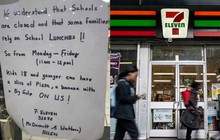 We understand that Schools
are closed and that some families
rely on School LUNCHES !!
So from Monday - Friday
(11am - 2pm)
Kids 18 and younger can have
a slice of Pizza, a banana with
Big Gulp ON US !
7-ELEVEN
(McDermott
7
ELEVEN